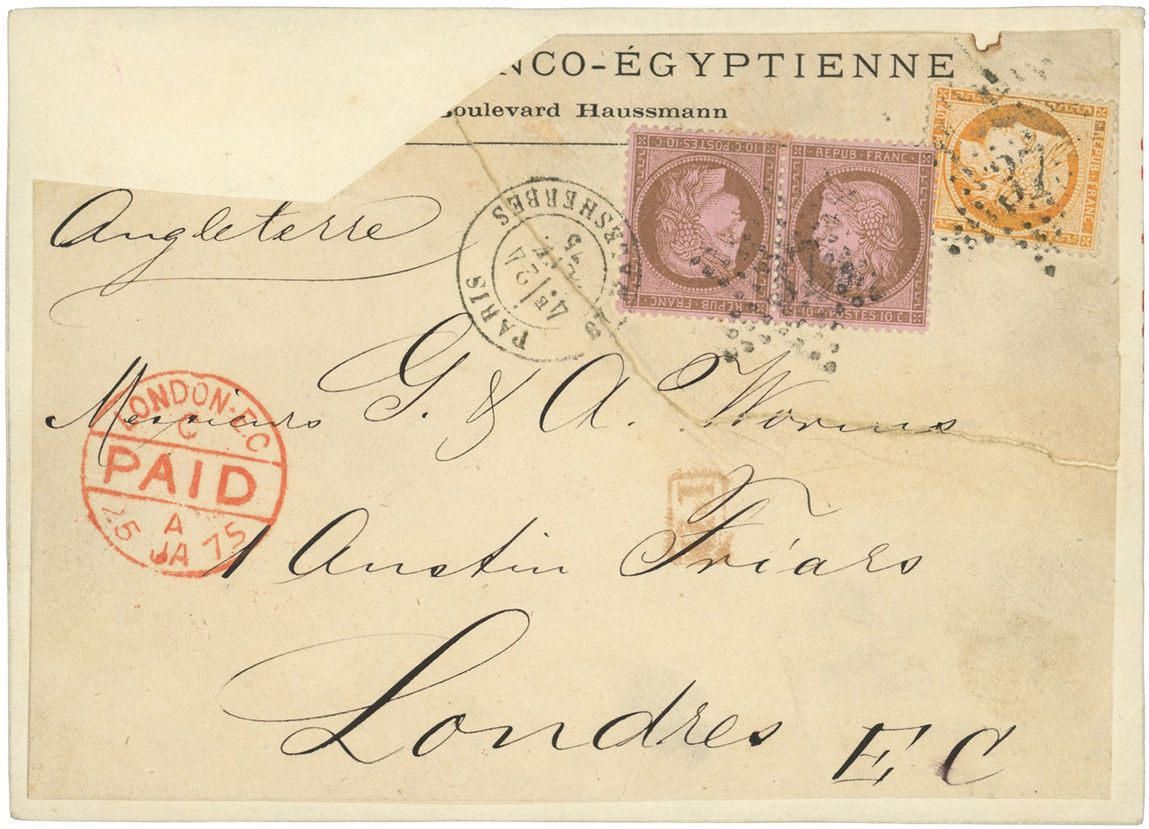 NCO-ÉGYPTIENNE
Boulevard Haussmann
10·C·POSTES·10·C·
REPUB·FRANC·
REPUB·FRANC·
10·C·POSTES·10·C·
REPUB·FRANC·
37
Angleterre
PARIS
4E 24
75
Messieurs G. & A. Worms
LONDON·E.C
C
PAID
A
25 JA 75
1 Austin Friars
Londres E C